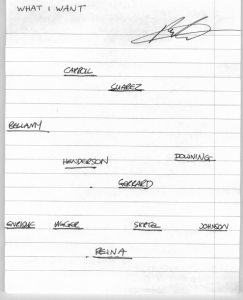 WHAT I WANT
CARROLL
SUAREZ
BELLAMY
DOWNING
HENDERSON
GERRARD
ENRIQUE AGGER SKRTEL JOHNSON
REINA